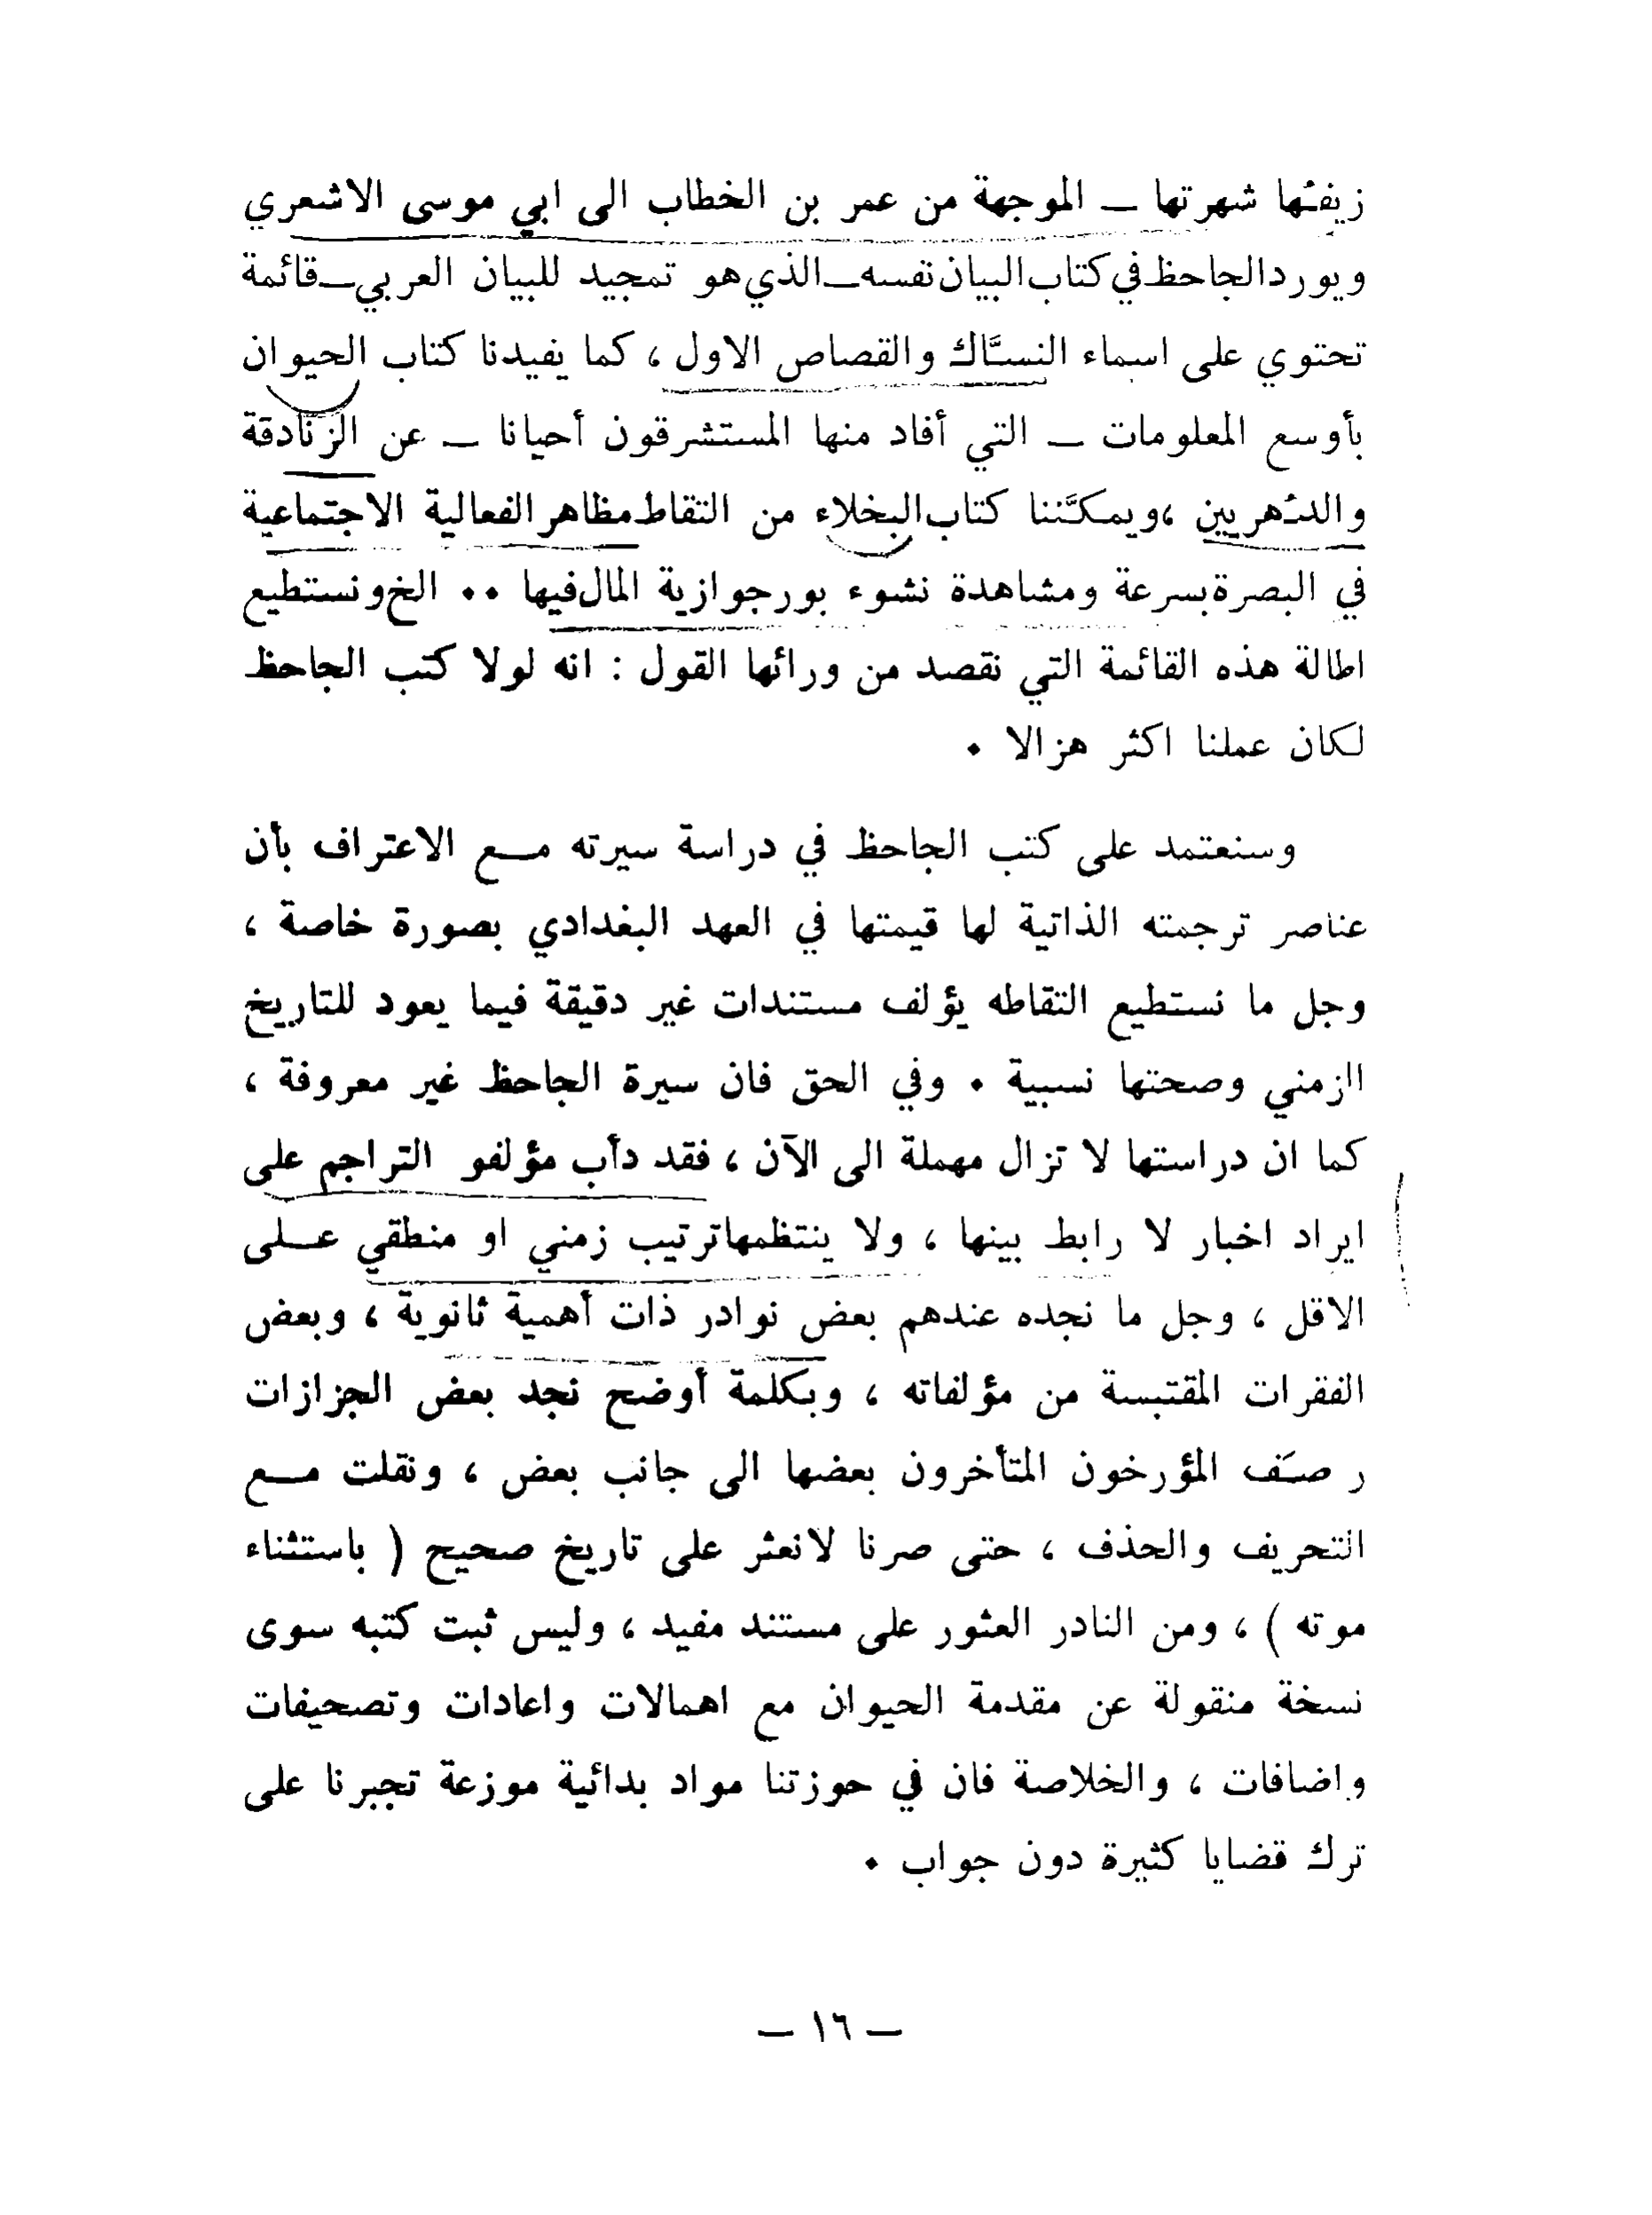 زيفها شهرتها – الموجهة من عمر بن الخطاب الى ابي موسى الاشعري
ويورد الجاحظ في كتاب البيان نفسه – الذي هو تمجيد للبيان العربي – قائمة
تحتوي على اسماء النسّاك والقصاص الاول ، كما يفيدنا كتاب الحيوان
بأوسع المعلومات – التي أفاد منها المستشرقون أحيانا – عن الزنادقة
والدهريين ، ويمكّننا كتاب البخلاء من التقاط مظاهر الفعالية الاجتماعية
في البصرة بسرعة ومشاهدة نشوء بورجوازية المال فيها ٠٠ الخ ونستطيع
اطالة هذه القائمة التي نقصد من ورائها القول : انه لولا كتب الجاحظ
لكان عملنا اكثر هزالا ٠
وسنعتمد على كتب الجاحظ في دراسة سيرته مـــع الاعتراف بأن
عناصر ترجمته الذاتية لها قيمتها في العهد البغدادي بصورة خاصة ،
وجل ما نستطيع التقاطه يؤلف مستندات غير دقيقة فيما يعود للتاريخ
الزمني وصحتها نسبية ٠ وفي الحق فان سيرة الجاحظ غير معروفة ،
كما ان دراستها لا تزال مهملة الى الآن ، فقد دأب مؤلفو التراجم على
ايراد اخبار لا رابط بينها ، ولا ينتظمها ترتيب زمني او منطقي عـــلى
الاقل ، وجل ما نجده عندهم بعض نوادر ذات أهمية ثانوية ، وبعض
الفقرات المقتبسة من مؤلفاته ، وبكلمة أوضح نجد بعض الجزازات
رصَف المؤرخون المتأخرون بعضها الى جانب بعض ، ونقلت مـــع
التحريف والحذف ، حتى صرنا لا نعثر على تاريخ صحيح ( باستثناء
موته ) ، ومن النادر العثور على مستند مفيد ، وليس ثبت كتبه سوى
نسخة منقولة عن مقدمة الحيوان مع اهمالات واعادات وتصحيفات
واضافات ، والخلاصة فان في حوزتنا مواد بدائية موزعة تجبرنا على
ترك قضايا كثيرة دون جواب ٠
– ١٦ –